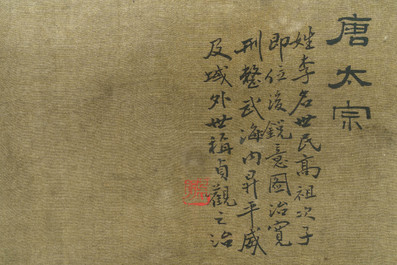 唐太宗
姓李名世民高祖次子
即位後銳意圖治寬
刑整武海內昇平威
及域外世稱貞觀之治